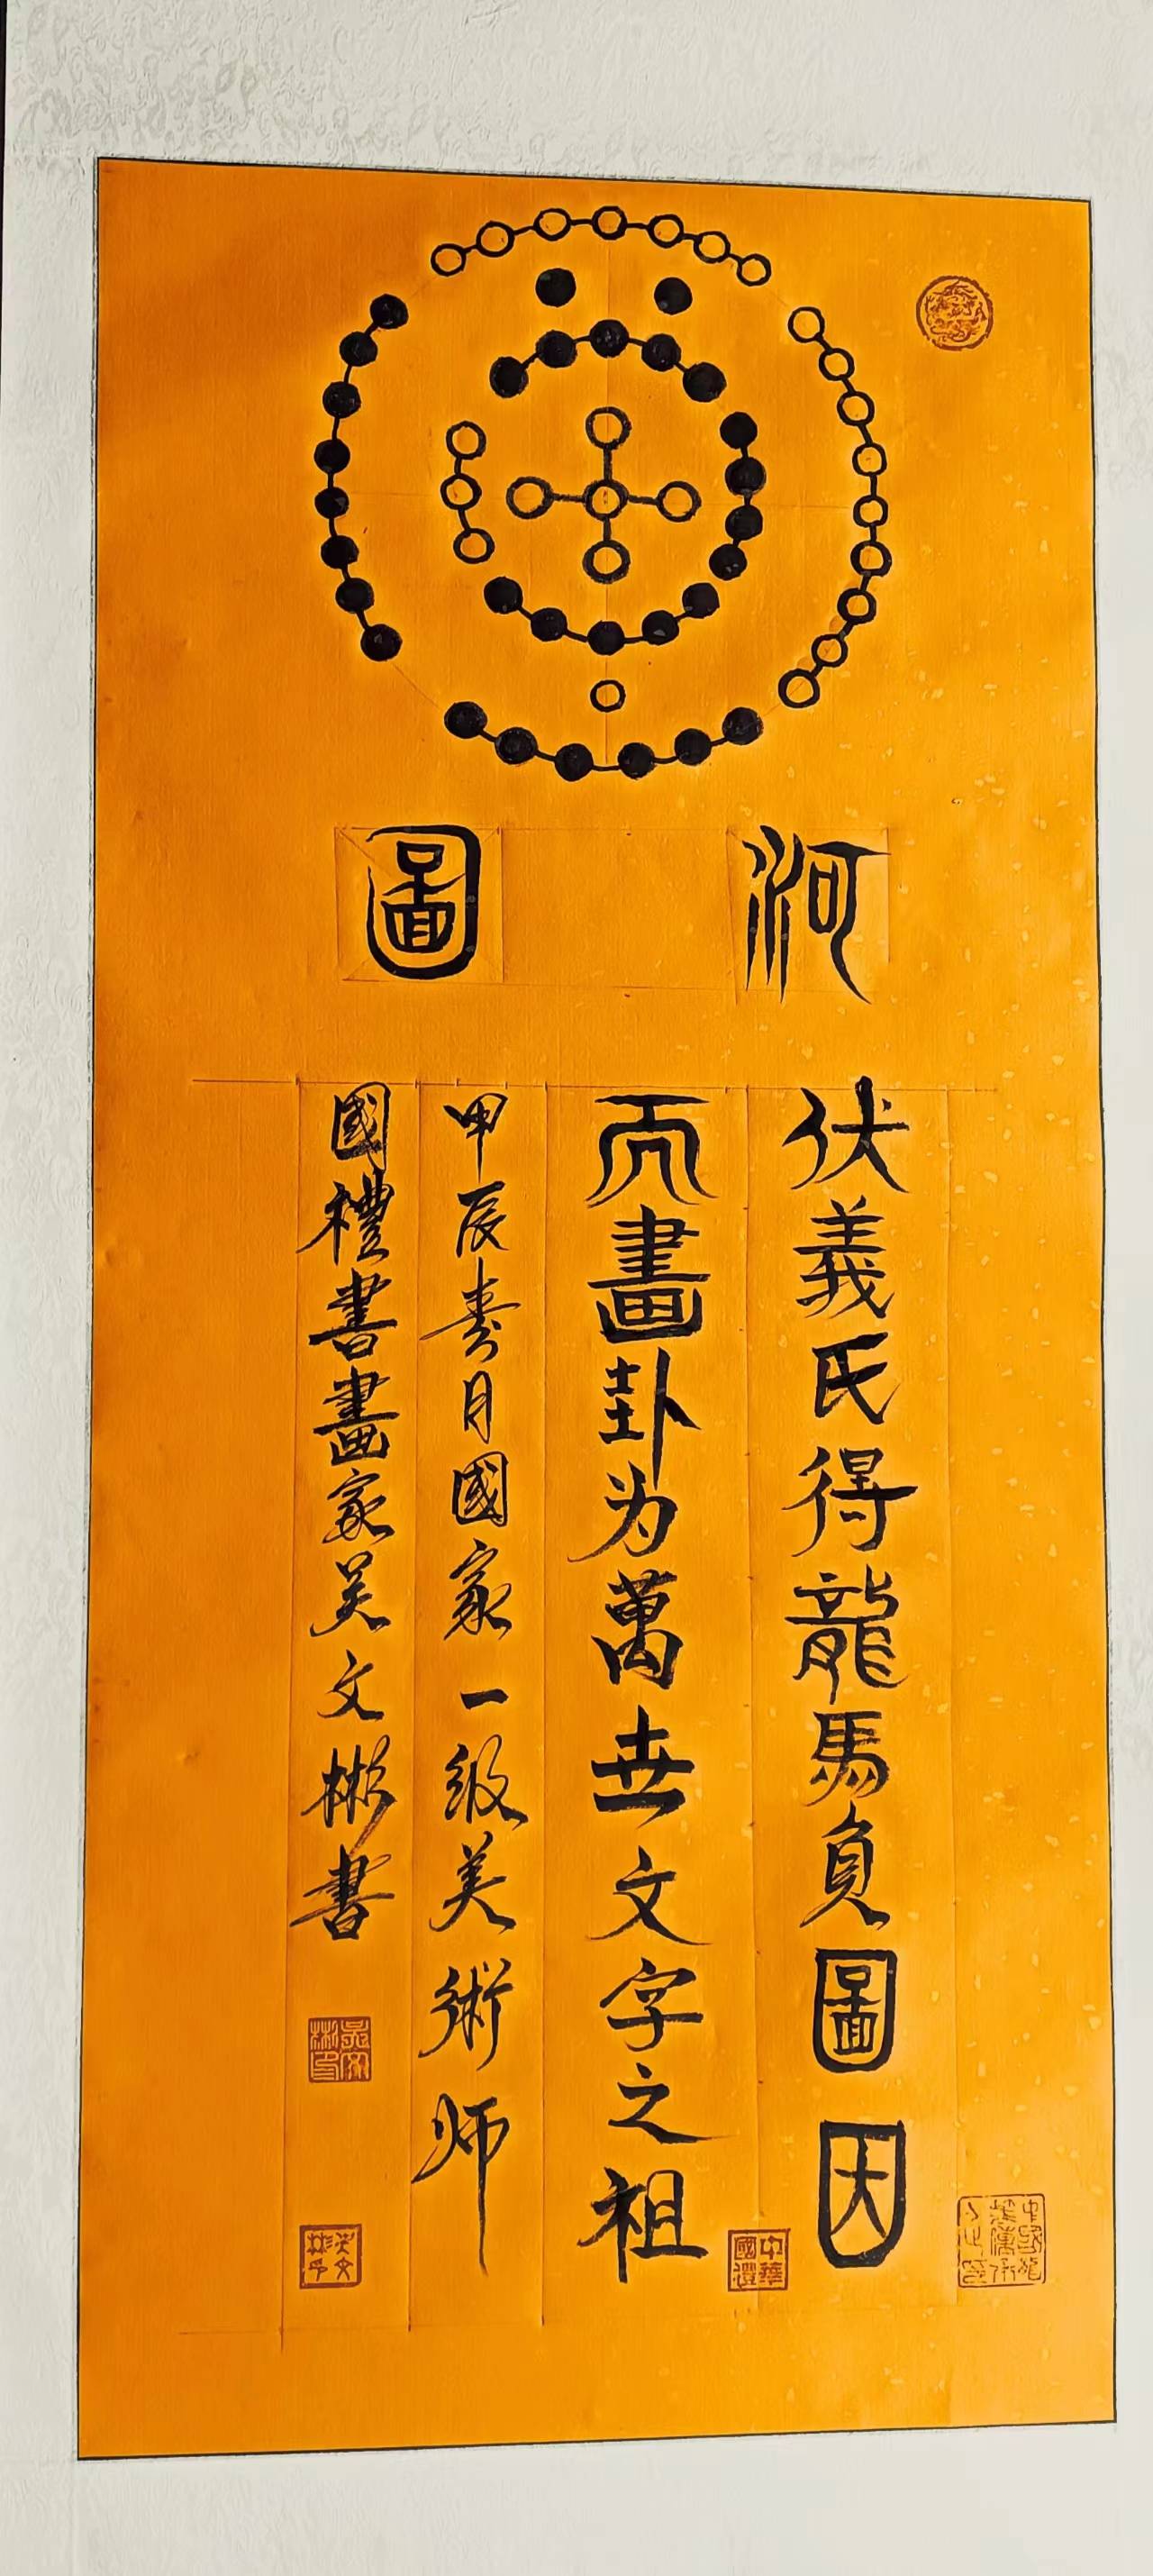 河圖
伏義氏得龍馬負圖因
而畫卦为萬世文字之祖
甲辰壽月國家一级美術师
國禮書畫家吴文彬書
中華國禮